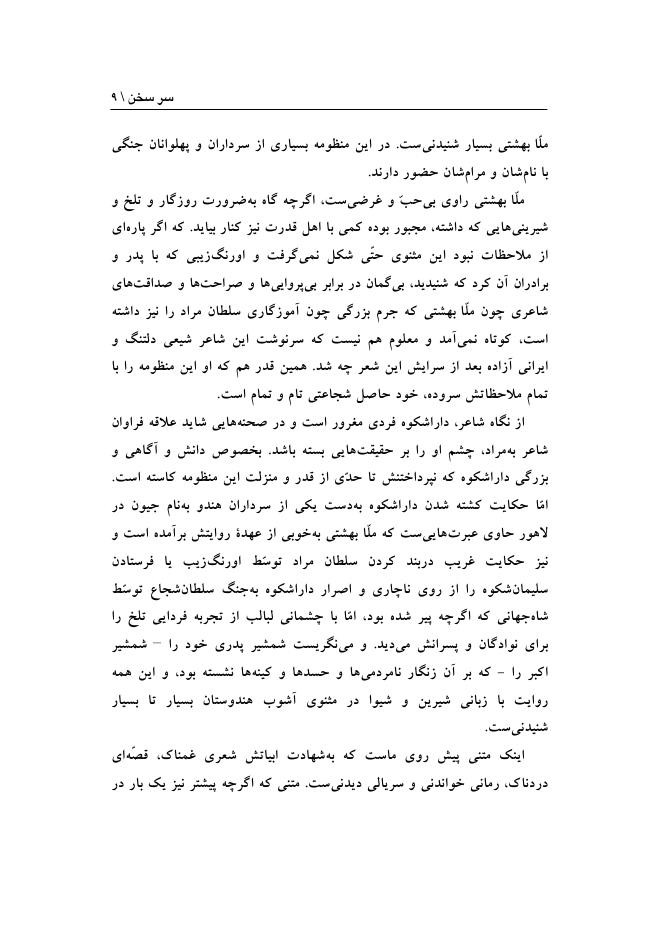 سر سخن \ ۹
ملّا بهشتی بسیار شنیدنی‌ست. در این منظومه بسیاری از سرداران و پهلوانان جنگی
با نام‌شان و مرام‌شان حضور دارند.
ملّا بهشتی راوی بی‌حبّ و غرضی‌ست، اگرچه گاه به‌ضرورت روزگار و تلخ و
شیرینی‌هایی که داشته، مجبور بوده کمی با اهل قدرت نیز کنار بیاید. که اگر پاره‌ای
از ملاحظات نبود این مثنوی حتّی شکل نمی‌گرفت و اورنگ‌زیبی که با پدر و
برادران آن کرد که شنیدید، بی‌گمان در برابر بی‌پروایی‌ها و صراحت‌ها و صداقت‌های
شاعری چون ملّا بهشتی که جرم بزرگی چون آموزگاری سلطان مراد را نیز داشته
است، کوتاه نمی‌آمد و معلوم هم نیست که سرنوشت این شاعر شیعی دلتنگ و
ایرانی آزاده بعد از سرایش این شعر چه شد. همین قدر هم که او این منظومه را با
تمام ملاحظاتش سروده، خود حاصل شجاعتی تام و تمام است.
از نگاه شاعر، داراشکوه فردی مغرور است و در صحنه‌هایی شاید علاقه فراوان
شاعر به‌مراد، چشم او را بر حقیقت‌هایی بسته باشد. بخصوص دانش و آگاهی و
بزرگی داراشکوه که نپرداختنش تا حدّی از قدر و منزلت این منظومه کاسته است.
امّا حکایت کشته شدن داراشکوه به‌دست یکی از سرداران هندو به‌نام جیون در
لاهور حاوی عبرت‌هایی‌ست که ملّا بهشتی به‌خوبی از عهدۀ روایتش برآمده است و
نیز حکایت غریب دربند کردن سلطان مراد توسّط اورنگ‌زیب یا فرستادن
سلیمان‌شکوه را از روی ناچاری و اصرار داراشکوه به‌جنگ سلطان‌شجاع توسّط
شاه‌جهانی که اگرچه پیر شده بود، امّا با چشمانی لبالب از تجربه فردایی تلخ را
برای نوادگان و پسرانش می‌دید. و می‌نگریست شمشیر پدری خود را – شمشیر
اکبر را – که بر آن زنگار نامردمی‌ها و حسدها و کینه‌ها نشسته بود، و این همه
روایت با زبانی شیرین و شیوا در مثنوی آشوب هندوستان بسیار تا بسیار
شنیدنی‌ست.
اینک متنی پیش روی ماست که به‌شهادت ابیاتش شعری غمناک، قصّه‌ای
دردناک، رمانی خواندنی و سریالی دیدنی‌ست. متنی که اگرچه پیشتر نیز یک بار در